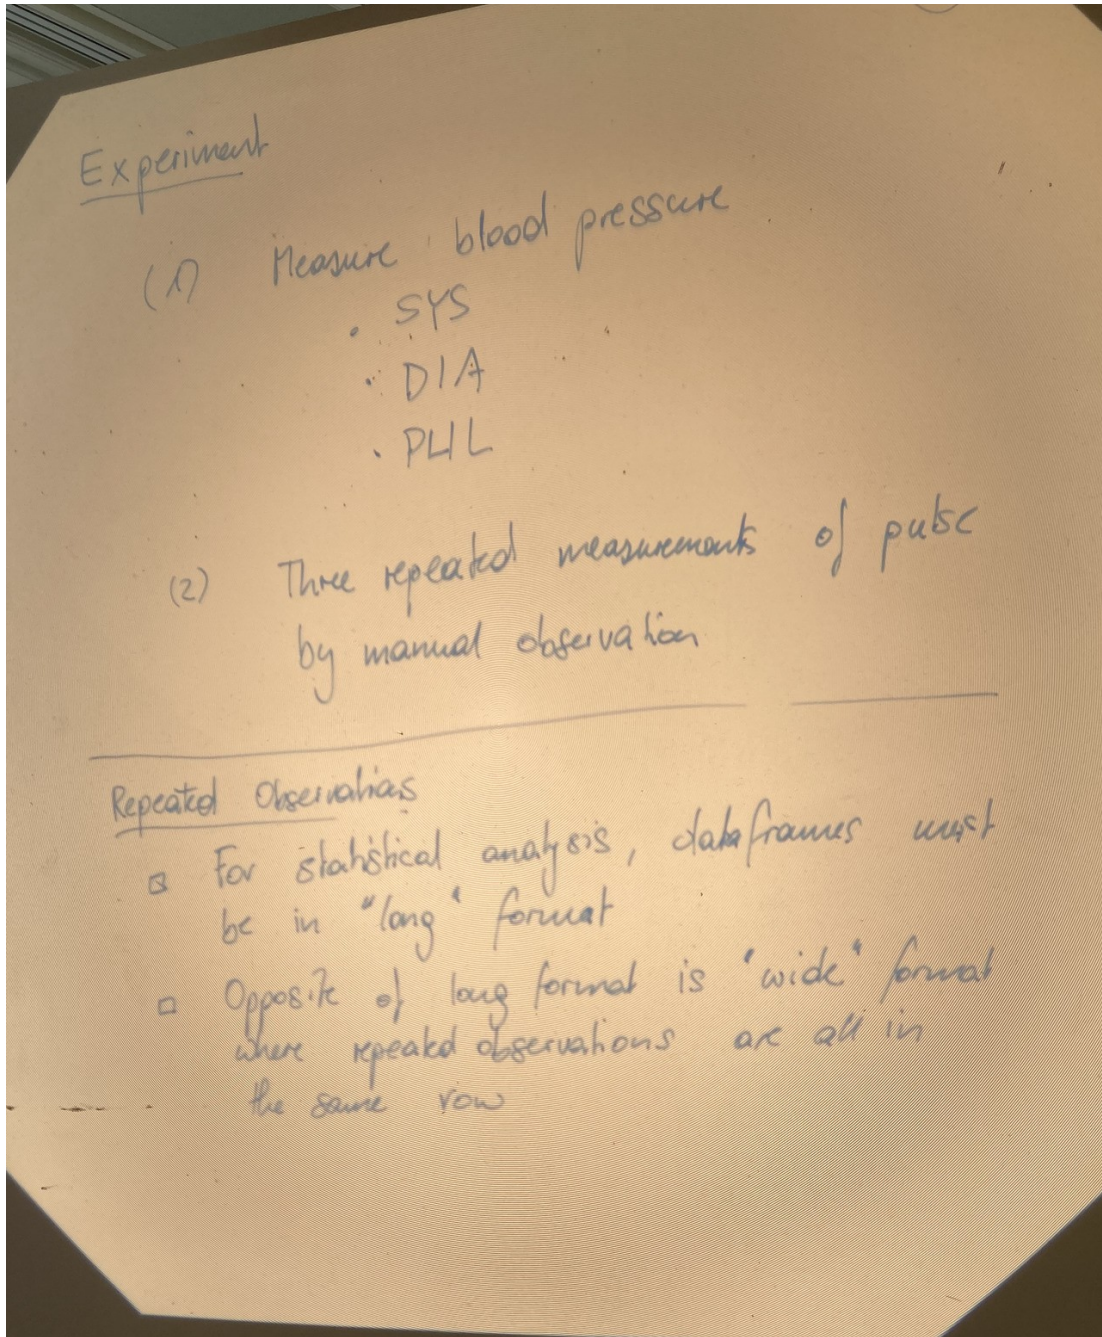 Experiment
(1) Measure blood pressure
• SYS
• DIA
• PUL
(2) Three repeated measurements of pulse
by manual observation
Repeated Observations
□ For statistical analysis, dataframes must
be in "long" format
□ Opposite of long format is "wide" format
where repeated observations are all in
the same row